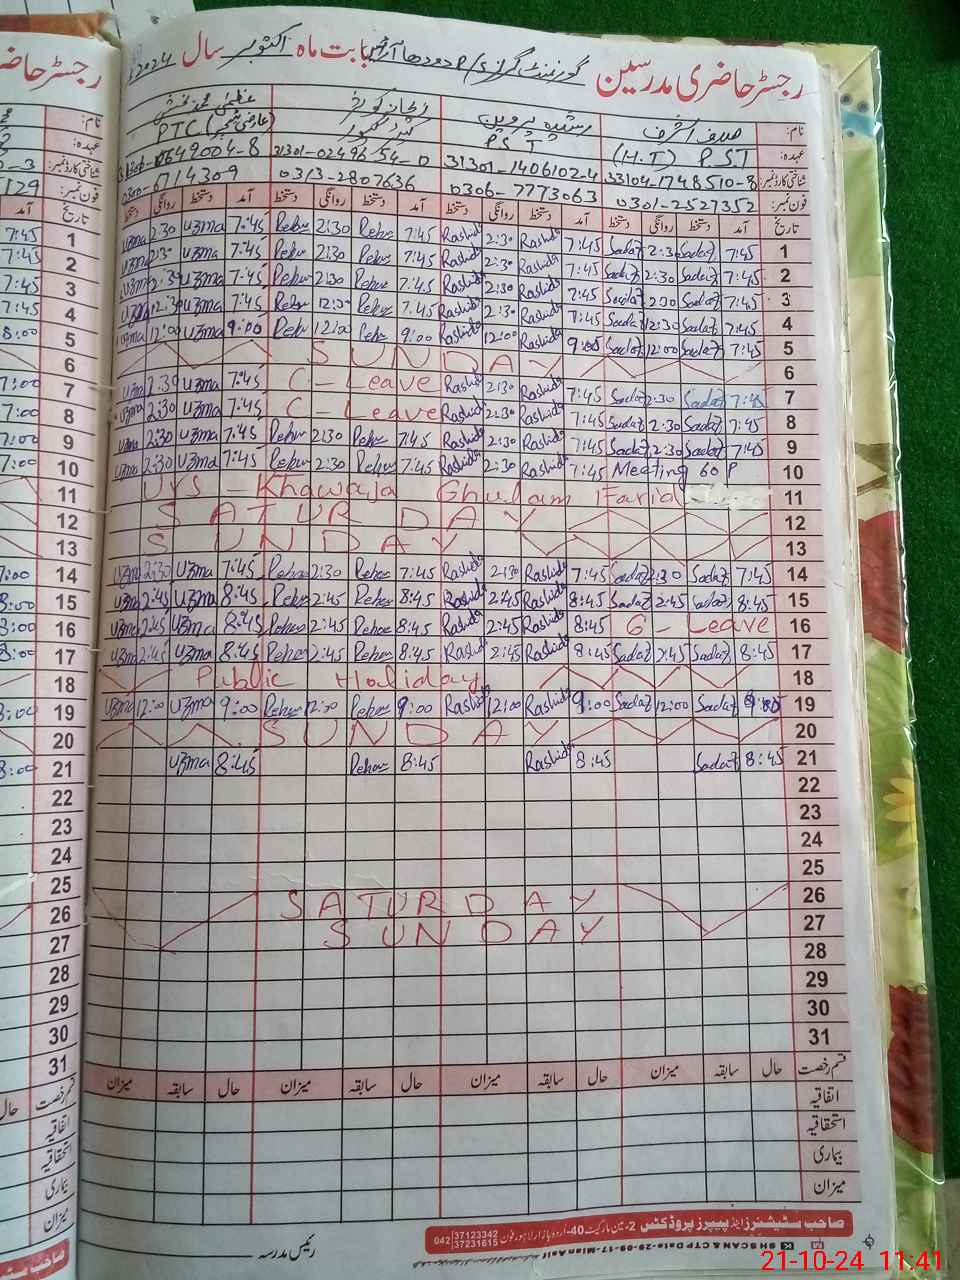 رجسٹر حاضری مدرسین گورنمنٹ گرلز P/S بابت ماہ اکتوبر سال 2024
نام: صدف اشرف رشیدہ پروین عظمیٰ محمد بخش
عہدہ: (H.T) PST PST PTC
شناختی کارڈ نمبر: 33104-1748510-8 31301-1406102-4 31301-0249654-0
فون نمبر: 0301-2527352 0306-7773063 0313-2807636
تاریخ آمد دستخط روانگی دستخط آمد دستخط روانگی دستخط آمد دستخط روانگی دستخط آمد دستخط روانگی دستخط
1 7:45 Sadaf 2:30 Sadaf 7:45 Rashida 2:30 Rashida 7:45 Rehan 2:30 Rehan 7:45 Uzma 2:30 Uzma
2 7:45 Sadaf 2:30 Sadaf 7:45 Rashida 2:30 Rashida 7:45 Rehan 2:30 Rehan 7:45 Uzma 2:30 Uzma
3 7:45 Sadaf 2:30 Sadaf 7:45 Rashida 2:30 Rashida 7:45 Rehan 2:30 Rehan 7:45 Uzma 2:30 Uzma
4 7:45 Sadaf 12:30 Sadaf 7:45 Rashida 2:30 Rashida 7:45 Rehan 12:30 Rehan 7:45 Uzma 12:30 Uzma
5 7:45 Sadaf 12:00 Sadaf 9:05 Rashida 12:00 Rashida 9:00 Rehan 12:00 Rehan 9:00 Uzma 12:00 Uzma
6 SUNDAY
7 7:45 Sadaf 2:30 Sadaf 7:45 Rashida 2:30 Rashida C-Leave 7:45 Uzma 2:30 Uzma
8 7:45 Sadaf 2:30 Sadaf 7:45 Rashida 2:30 Rashida C-Leave 7:45 Uzma 2:30 Uzma
9 7:45 Sadaf 2:30 Sadaf 7:45 Rashida 2:30 Rashida 7:45 Rehan 2:30 Rehan 7:45 Uzma 2:30 Uzma
10 Meeting 60 P 7:45 Rashida 2:30 Rashida 7:45 Rehan 2:30 Rehan 7:45 Uzma 2:30 Uzma
11 Urs - Khawaja Ghulam Farid
12 SATURDAY
13 SUNDAY
14 7:45 Sadaf 2:30 Sadaf 7:45 Rashida 2:30 Rashida 7:45 Rehan 2:30 Rehan 7:45 Uzma 2:30 Uzma
15 8:45 Sadaf 2:45 Sadaf 8:45 Rashida 2:45 Rashida 8:45 Rehan 2:45 Rehan 8:45 Uzma 2:45 Uzma
16 C-Leave 8:45 Rashida 2:45 Rashida 8:45 Rehan 2:45 Rehan 8:45 Uzma 2:45 Uzma
17 8:45 Sadaf 2:45 Sadaf 8:45 Rashida 2:45 Rashida 8:45 Rehan 2:45 Rehan 8:45 Uzma 2:45 Uzma
18 Public Holiday
19 9:00 Sadaf 12:00 Sadaf 9:00 Rashida 12:00 Rashida 9:00 Rehan 12:00 Rehan 9:00 Uzma 12:00 Uzma
20 SUNDAY
21 8:45 Sadaf 8:45 Rashida 8:45 Rehan 8:45 Uzma
22
23
24
25
26 SATURDAY
27 SUNDAY
28
29
30
31
قسم رخصت حال سابقہ میزان حال سابقہ میزان حال سابقہ میزان حال سابقہ میزان
اتفاقیہ
استحقاقیہ
بیماری
میزان
صاحب سٹیشنرز اینڈ پیپرز پروڈکٹس 2-مین مارکیٹ 40-اردو بازار لاہور فون 042 37123342 37231615
رئیس مدرسہ
21-10-24 11:41